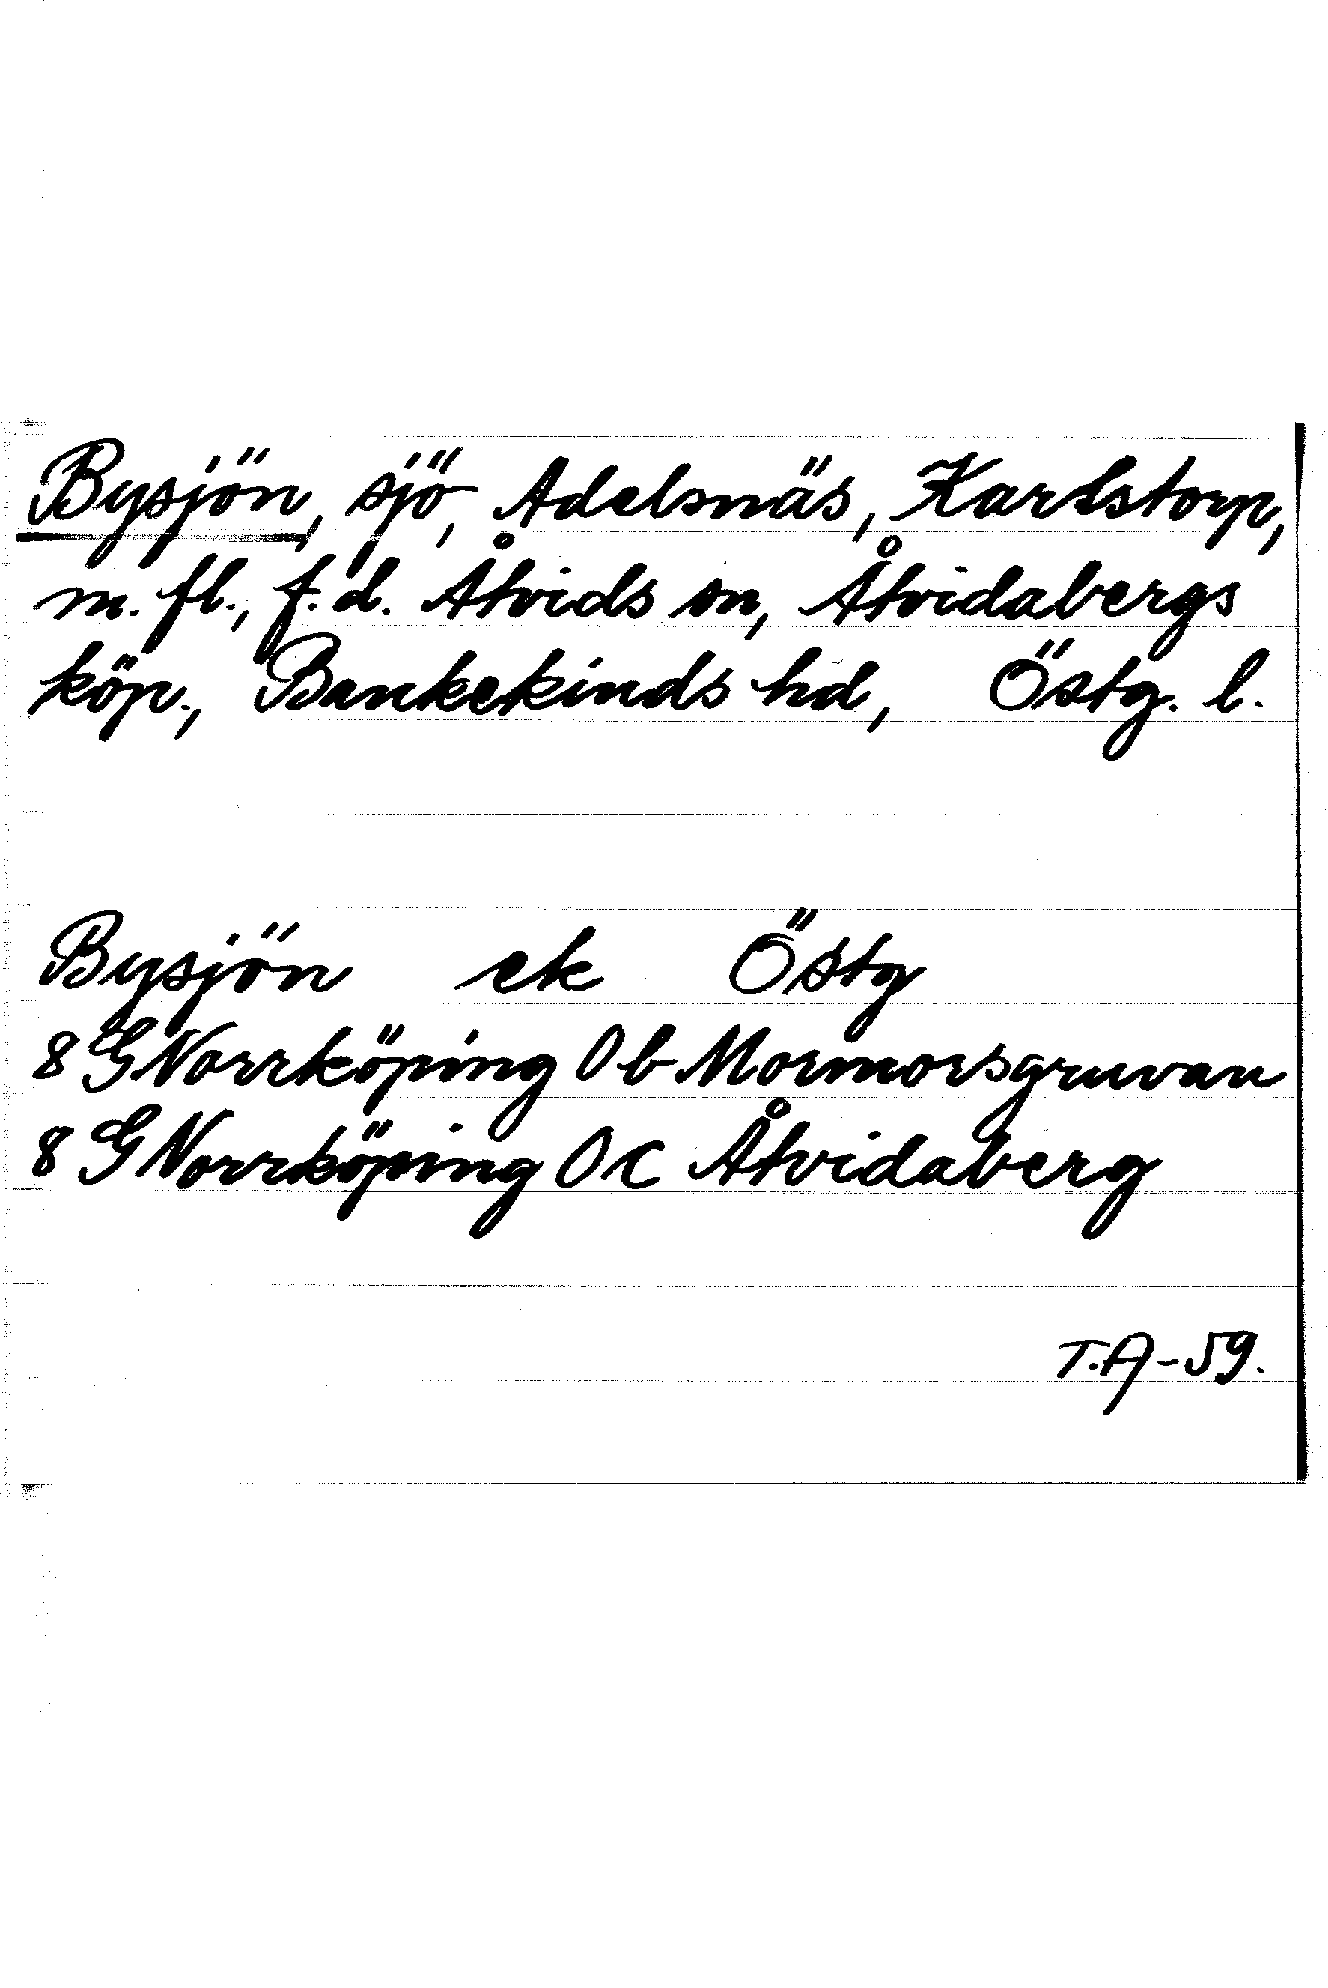 Bysjön, sjö, Adelsnäs, Karlstorp,
m. fl., f.d. Åtvids sn, Åtvidabergs
köp., Bankekinds hd, Östg. l.
Bysjön ek Östg
8 G Norrköping 0 b Mormorsgruvan
8 G Norrköping 0 c Åtvidaberg
T.A-59.